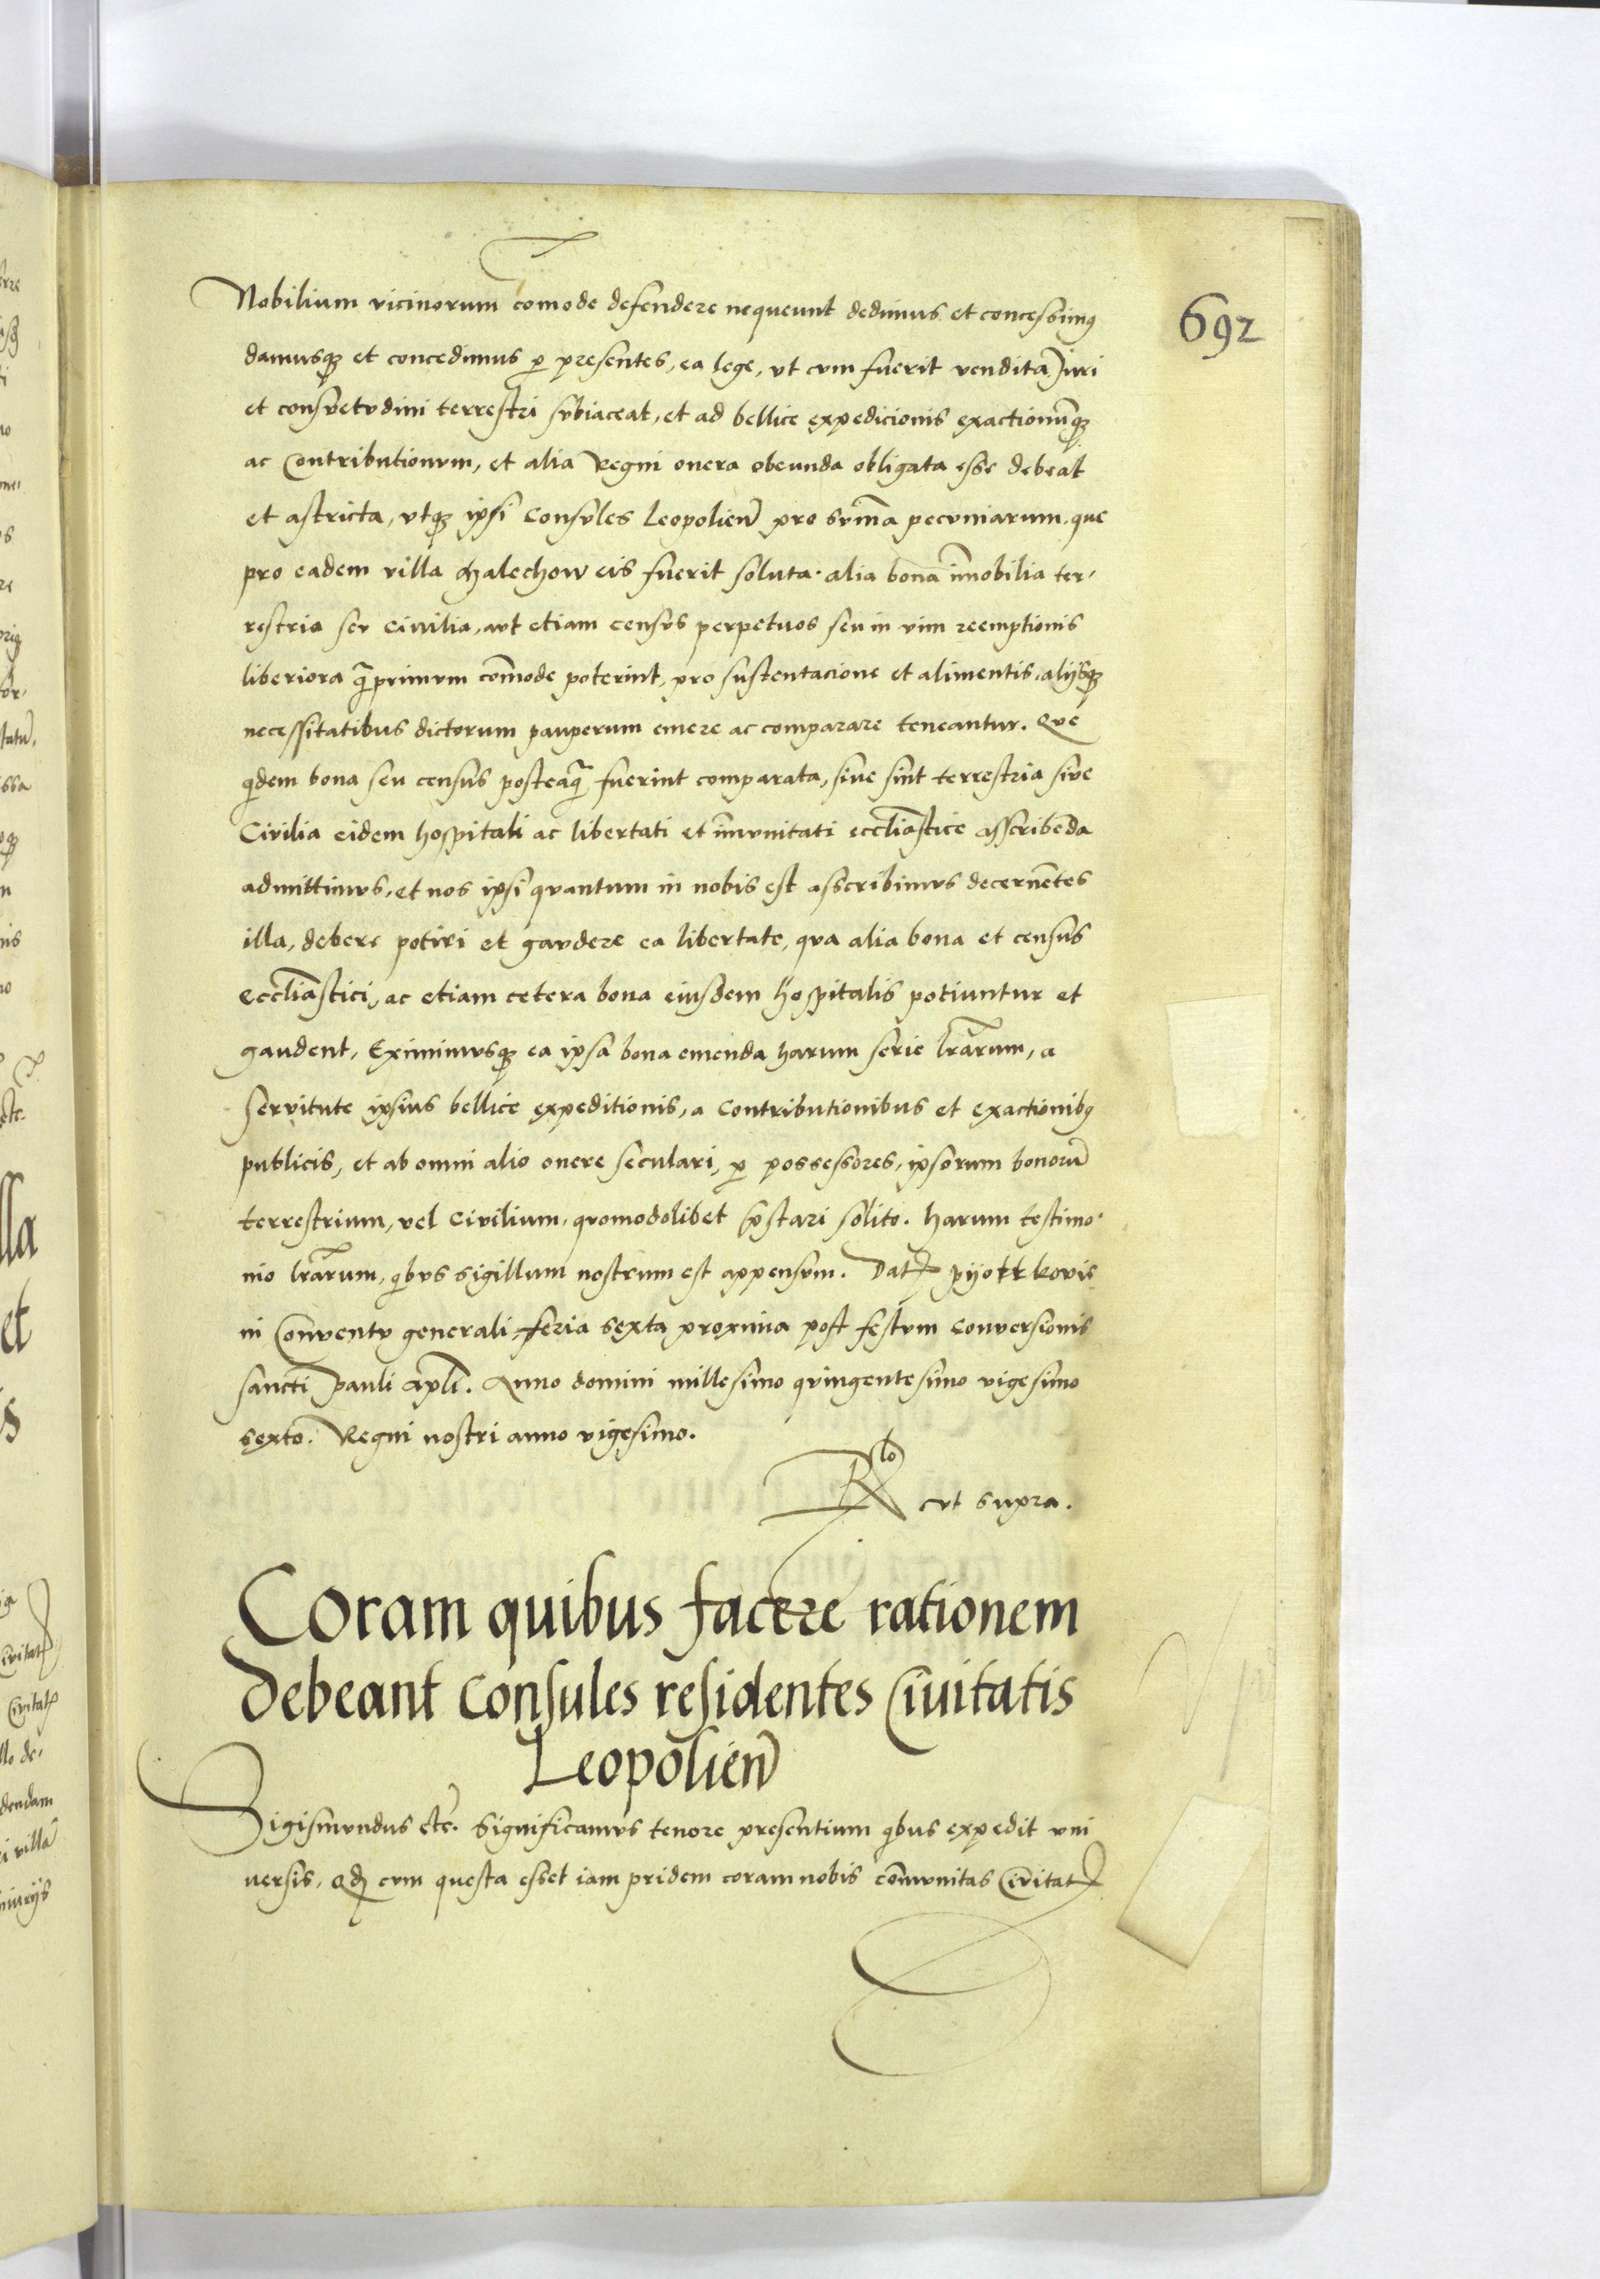 692
Nobilium vicinorum comode defendere nequeunt dedimus et concessimus
damusq; et concedimus p presentes, ea lege, vt cvm fuerit vendita Juri
et consvetvdini terrestri svbiaceat, et ad bellice expedicionis exactionūq;
ac Contributionvm, et alia Regni onera obeunda obligata esse debeat
et astricta, vtq; ipsi Consvles Leopolień pro svm̄a pecvniarum, que
pro eadem villa Malechow eis fuerit soluta. alia bona im̄obilia ter-
restria sev Civilia, avt etiam censvs perpetvos seu in vim reemptionis
liberiora q̄primvm com̄ode poterint, pro sustentacione et alimentis, alijsq;
necessitatibus dictorum pauperum emere ac comparare teneantur. Qve
qdem bona seu census posteaq̄ fuerint comparata, siue sint terrestria sive
Civilia eidem hospitali ac libertati et im̄vnitati eccl̄iastice asscribenda
admittimvs, et nos ipsi qvantum in nobis est asscribimvs decernētes
illa, debere potiri et gavdere ea libertate, qva alia bona et censūs
Eccl̄iastici, ac etiam cetera bona eiusdem hospitalis potiuntur et
gaudent, Eximimvsq; ea ipsa bona emenda harum serie lr̄arum, a
servitute ipsius bellice expeditionis, a Contributionibus et exactionibus
publicis, et ab omni alio onere seculari, p possessores, ipsorum bonorū
terrestrium, vel Civilium, qvomodolibet p̄stari solito. Harum testimo-
nio lr̄arum, qbvs sigillum nostrum est appensvm. Dat pijotrkovie
in Conventv generali, feria sexta proxima post festvm Conversionis
sancti Pauli apl̄i. Anno domini millesimo qvingentesimo vigesimo
sexto. Regni nostri anno vigesimo.
Rlo vt supra.
Coram quibus facere rationem
debeant Consules residentes Ciuitatis
Leopolień
Sigismvndus etc. Significamvs tenore presentium qbus expedit vni
versis, qd cvm questa esset iam pridem coram nobis com̄vnitas Civitat